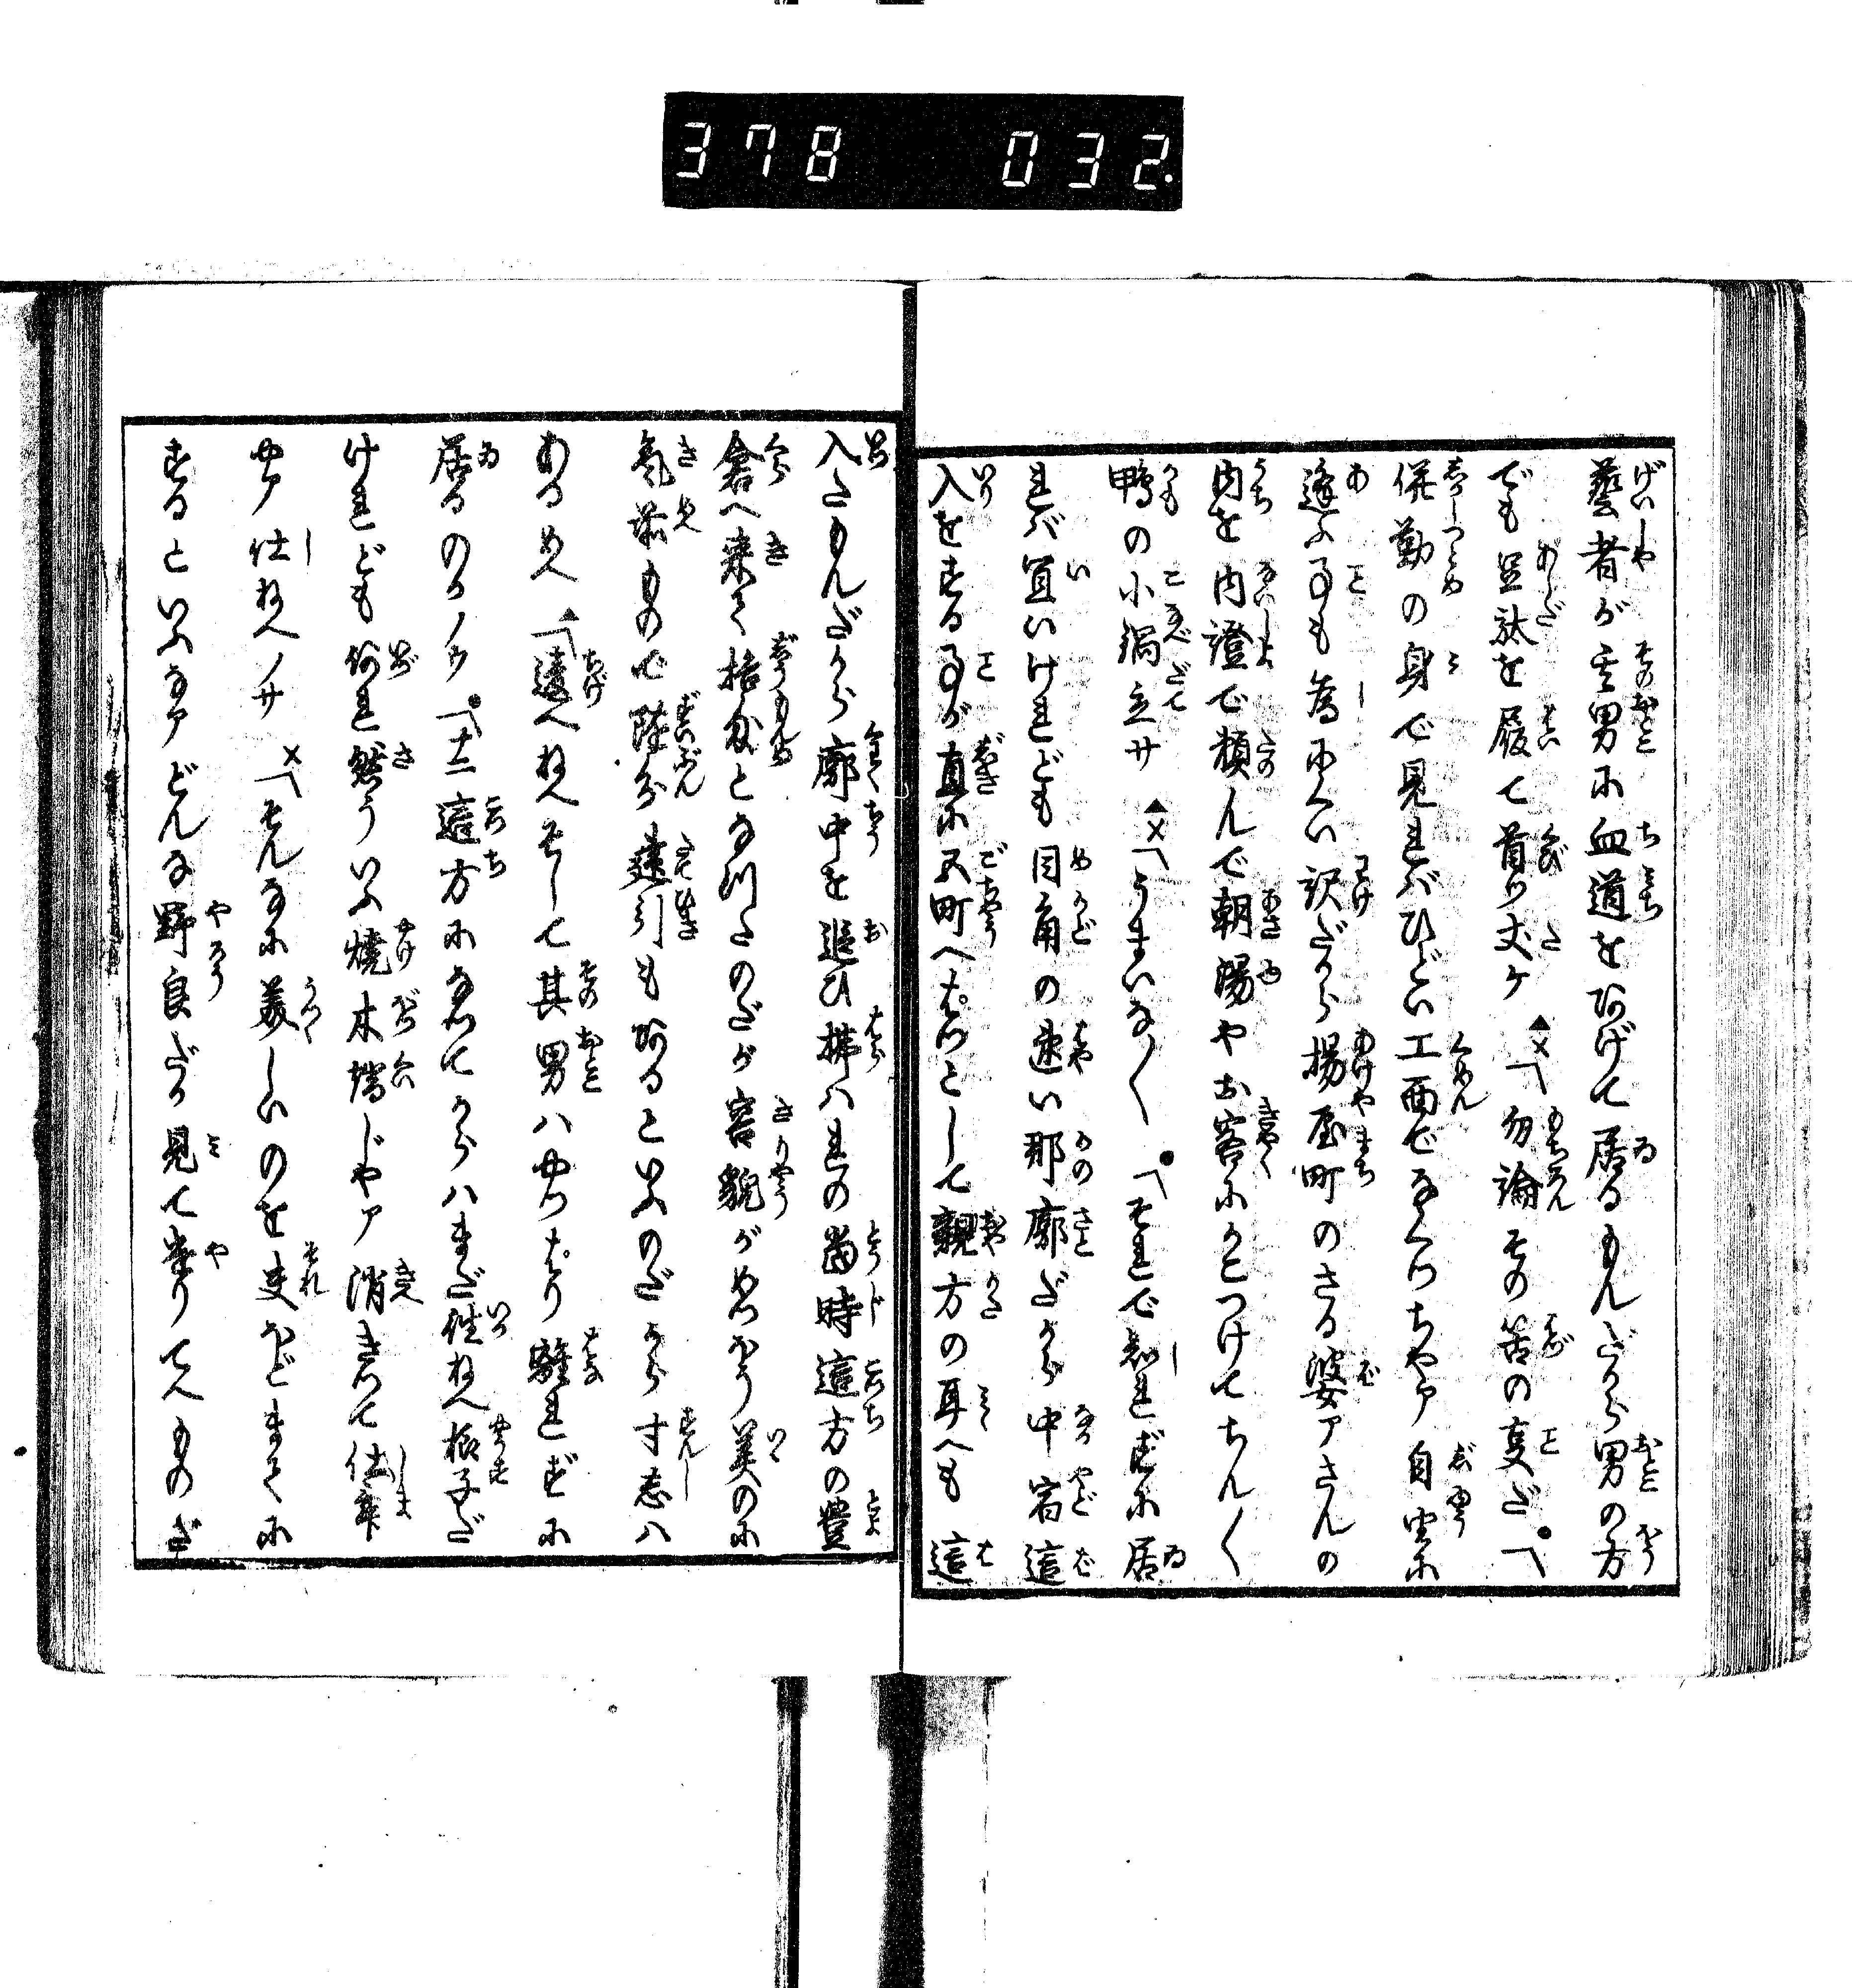 378 032.
藝者が其男に血道をあげて居るもんだから男の方
でも足駄を履て首ツ丈ケ ▲×「勿論その筈の事だ ●「
併勤の身で見ればひどい工面でなくツちやア自由に
逢ふ事も為にくい訳だから揚屋町のさる婆アさんの
内を内證で頼んで朝湯やお客にかこつけてちん〱
鴨の小鍋立サ ▲×「うまいな〱 ●「それで知れずに居
れば宜いけれども目角の速い那廓だから中宿這
入をする事が直に五町へぱつとして親方の耳へも這
入たもんだから廓中を追ひ拂はれの當時這方の豊
倉へ来て拾衣となツたのだが容貌がめつほう美のに
気前もので随分達引も有るといふのだから寸志ハ
あるめへ ▲「遠へねへそして其男ハやツぱり離れずに
居るのかノウ ●「十二這方になつてからハまだ往ねへ様子だ
けれども何れ然ういふ焼木壜じやア消きつて仕舞
やア仕ねへノサ ×「そんなに美しいのを夫ほどまでに
するといふなアどんな野良だか見て遣りてへものだ